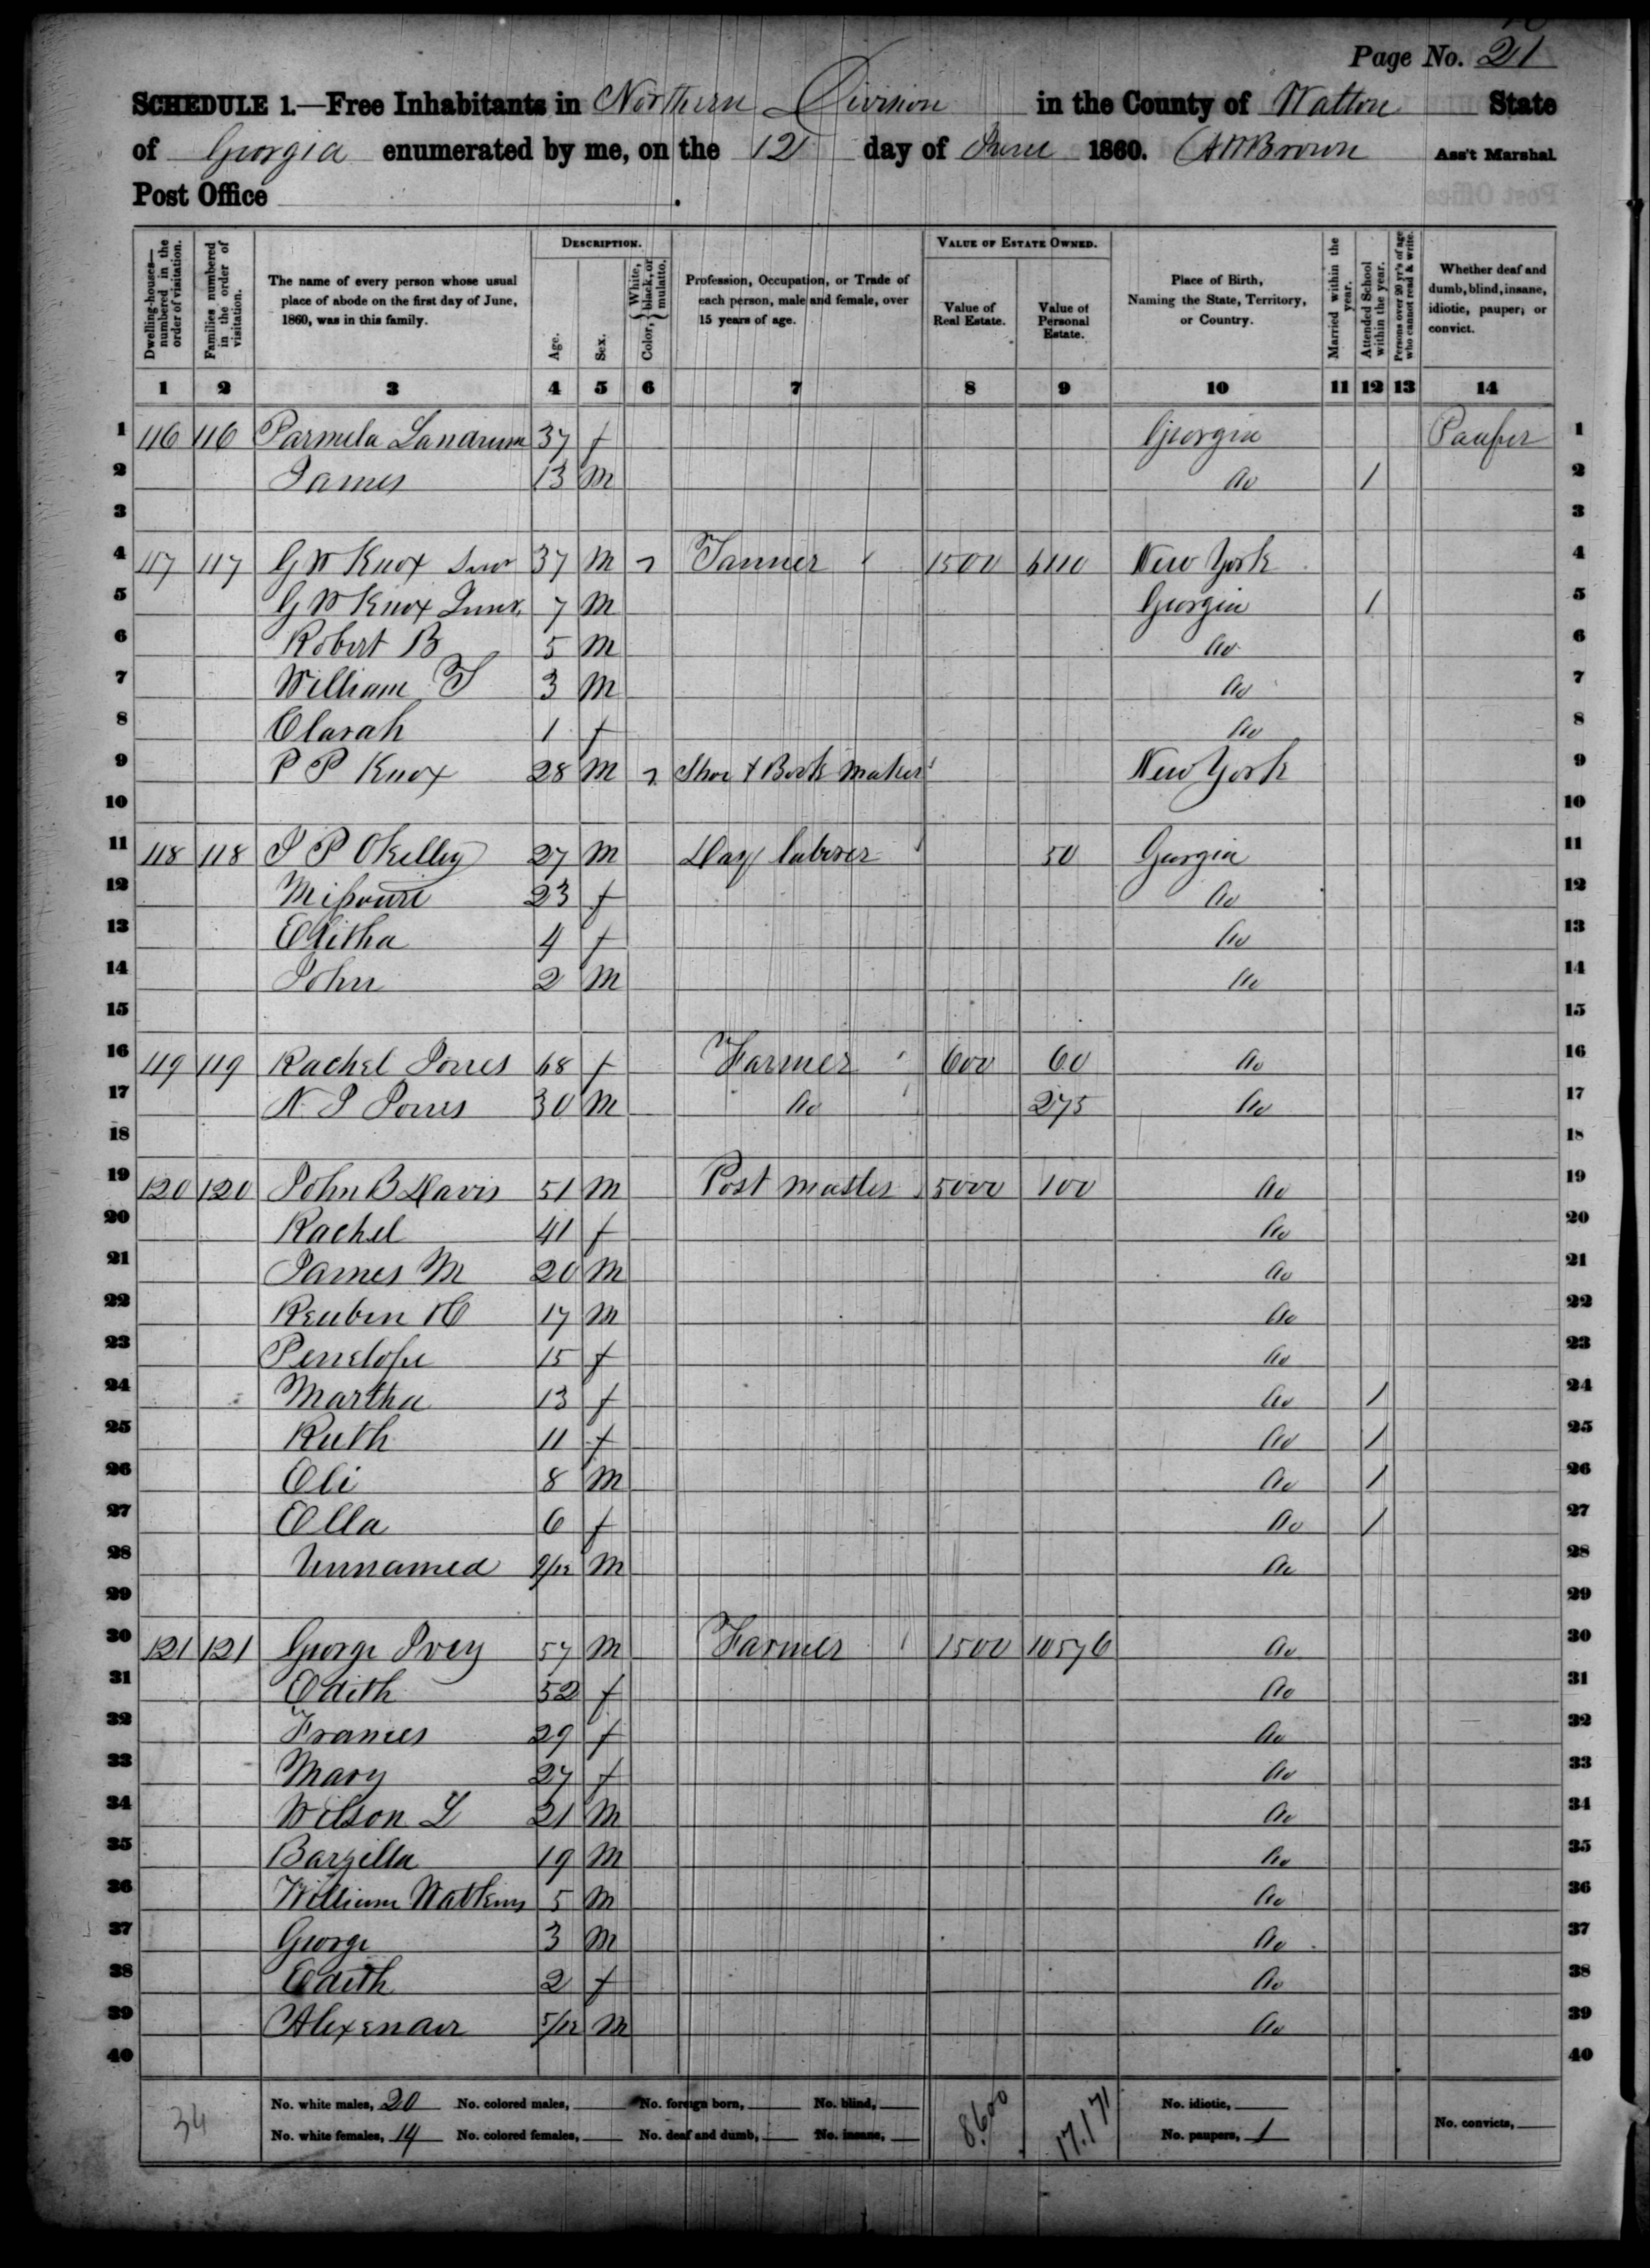 Page No. 21
SCHEDULE 1.—Free Inhabitants in Northern Division in the County of Walton State
of Georgia enumerated by me, on the 12 day of June 1860. A W Brown Ass't Marshal
Post Office .
Dwelling-houses—numbered in the order of visitation. Families numbered in the order of visitation. The name of every person whose usual place of abode on the first day of June, 1860, was in this family. DESCRIPTION. Age. Sex. Color, { White, black, or mulatto. Profession, Occupation, or Trade of each person, male and female, over 15 years of age. VALUE OF ESTATE OWNED. Value of Real Estate. Value of Personal Estate. Place of Birth, Naming the State, Territory, or Country. Married within the year. Attended School within the year. Persons over 20 yr's of age who cannot read & write. Whether deaf and dumb, blind, insane, idiotic, pauper, or convict.
1 2 3 4 5 6 7 8 9 10 11 12 13 14
1 116 116 Parmela Landrum 37 f Georgia Pauper 1
2 James 13 M do / 2
3 3
4 117 117 G W Knox Senr 37 M Tanner 1500 6110 New York 4
5 G W Knox Junr. 7 M Georgia / 5
6 Robert B 5 M do 6
7 William T 3 M do 7
8 Clarah 1 f do 8
9 P P Knox 28 M Shoe & Boot maker New York 9
10 10
11 118 118 J P OKelley 27 M Day laborer 50 Georgia 11
12 Missouri 23 f do 12
13 Elitha 4 f do 13
14 John 2 M do 14
15 15
16 119 119 Rachel Jones 68 f Farmer 600 60 do 16
17 N. J Jones 30 M do 275 do 17
18 18
19 120 120 John B Davis 51 M Post master 5000 100 do 19
20 Rachel 41 f do 20
21 James M 20 M do 21
22 Reuben H 17 M do 22
23 Penelope 15 f do 23
24 Martha 13 f do / 24
25 Ruth 11 f do / 25
26 Eli 8 M do / 26
27 Ella 6 f do / 27
28 Unnamed 9/12 M do 28
29 29
30 121 121 George Ivey 57 M Farmer 1500 10576 do 30
31 Edith 52 f do 31
32 Frances 29 f do 32
33 Mary 27 f do 33
34 Wilson L 21 M do 34
35 Barzilla 19 M do 35
36 William Watkins 5 M do 36
37 George 3 M do 37
38 Edith 2 f do 38
39 Alexender 5/12 M do 39
40 40
34 No. white males, 20 No. colored males, No. foreign born, No. blind, 8.600 17.171 No. idiotic,
No. white females, 14 No. colored females, No. deaf and dumb, No. insane, No. paupers, 1 No. convicts,